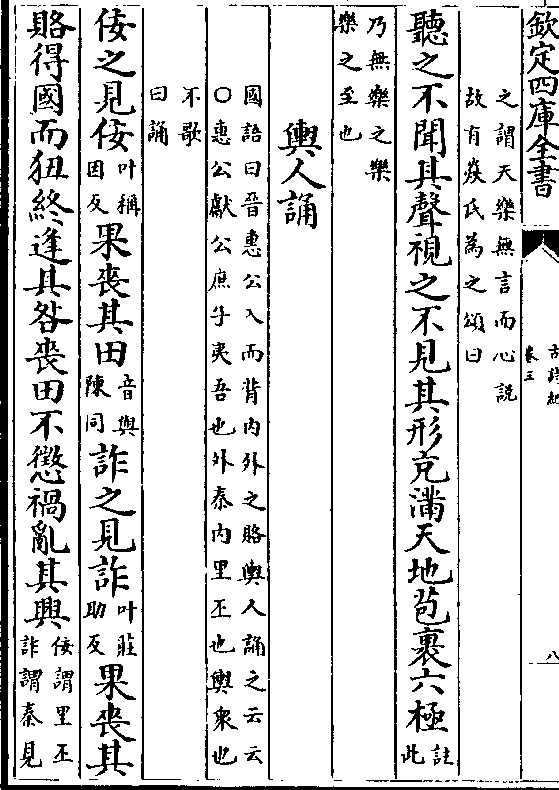 欽定四庫全書
古詩紀
卷三
八
之謂天樂無言而心説
故有焱氏為之頌曰
聽之不聞其聲視之不見其形充滿天地苞裹六極註
此
乃無樂之樂
樂之至也
輿人誦
國語曰晉惠公入而背内外之賂輿人誦之云云
○惠公獻公庶子夷吾也外秦内里丕也輿衆也
不歌
曰誦
佞之見佞叶稱
因反果喪其田音與
陳同詐之見詐叶莊
助反果喪其
賂得國而狃終逢其咎喪田不懲禍亂其興佞謂里丕
詐謂秦見